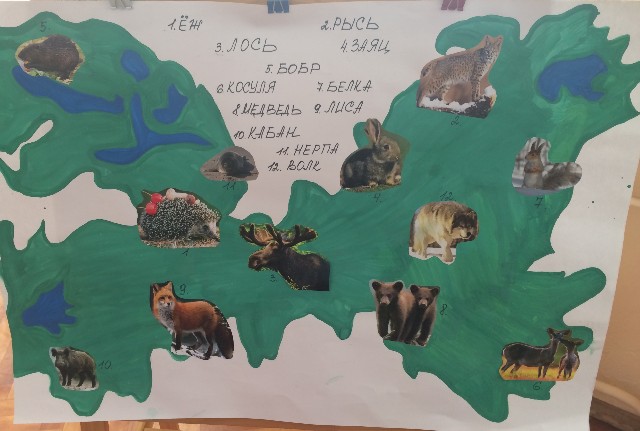 1.ЁЖ 2.РЫСЬ
3.ЛОСЬ 4.ЗАЯЦ
5.БОБР
6.КОСУЛЯ 7.БЕЛКА
8.МЕДВЕДЬ 9.ЛИСА
10.КАБАН
11.НЕРПА
12.ВОЛК
5
2
11
4
7
1
12
3
9
8
10
6